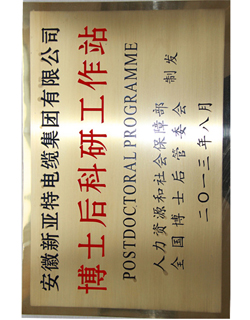 安徽新亚特电缆集团有限公司
博士后科研工作站
POSTDOCTORAL PROGRAMME
人力资源和社会保障部
全国博士后管委会
制发
二〇一三年八月